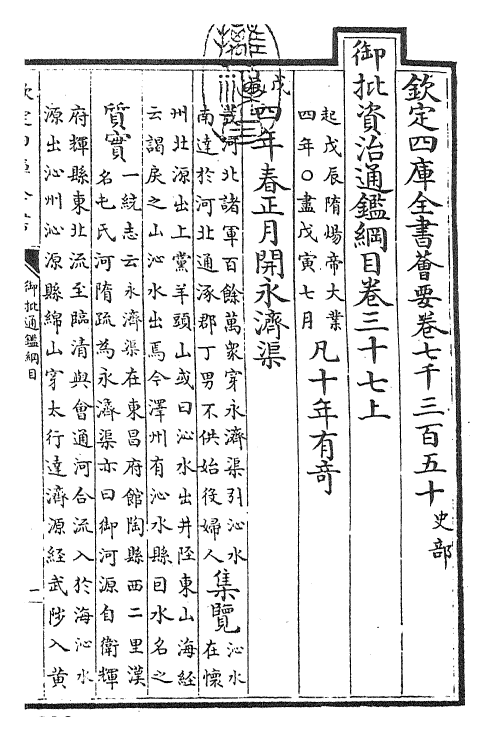 欽定四庫全書薈要卷七千三百五十 史部
御批資治通鑑綱目卷三十七上
起戊辰隋煬帝大業
四年○盡戊寅七月
凡十年有奇
戊
四年春正月開永濟渠
河北諸軍百餘萬衆穿永濟渠引沁水
南達於河北通涿郡丁男不供始役婦人
集覽
沁水
在懷
州北源出上黨羊頭山或曰沁水出井陘東山海經
云謁戾之山沁水出焉今澤州有沁水縣因水名之
質實
一統志云永濟渠在東昌府館陶縣西二里漢
名屯氏河隋疏為永濟渠亦曰御河源自衛輝
府輝縣東北流至臨清與會通河合流入於海沁水
源出沁州沁源縣綿山穿太行達濟源經武陟入黃
御批通鑑綱目
一